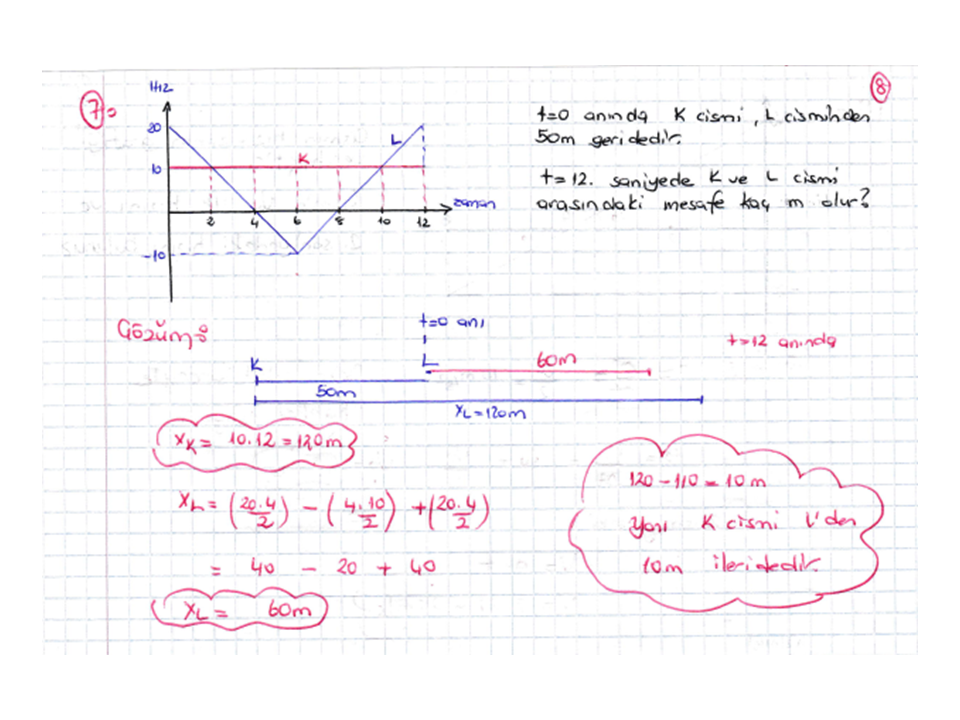 8
7:
Hız
20
10
-10
K
L
2 4 6 8 10 12
zaman
t=0 anında K cismi, L cisminden
50m geridedir.
t=12. saniyede K ve L cismi
arasındaki mesafe kaç m olur?
Çözüm:
t=0 anı
t=12 anında
K
L
60m
50m
XL=120m
XK= 10.12=120m
XL= (20.4/2) - (4.10/2) + (20.4/2)
= 40 - 20 + 40
XL= 60m
120-110=10m
Yani K cismi L'den
10m ileridedir.